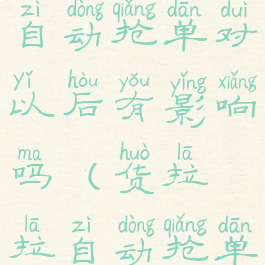 zì dòng qiǎng dān duì
自动抢单对
yǐ hòu yǒu yǐng xiǎng
以后有影响
ma huò lā
吗（货拉
lā zì dòng qiǎng dān
拉自动抢单